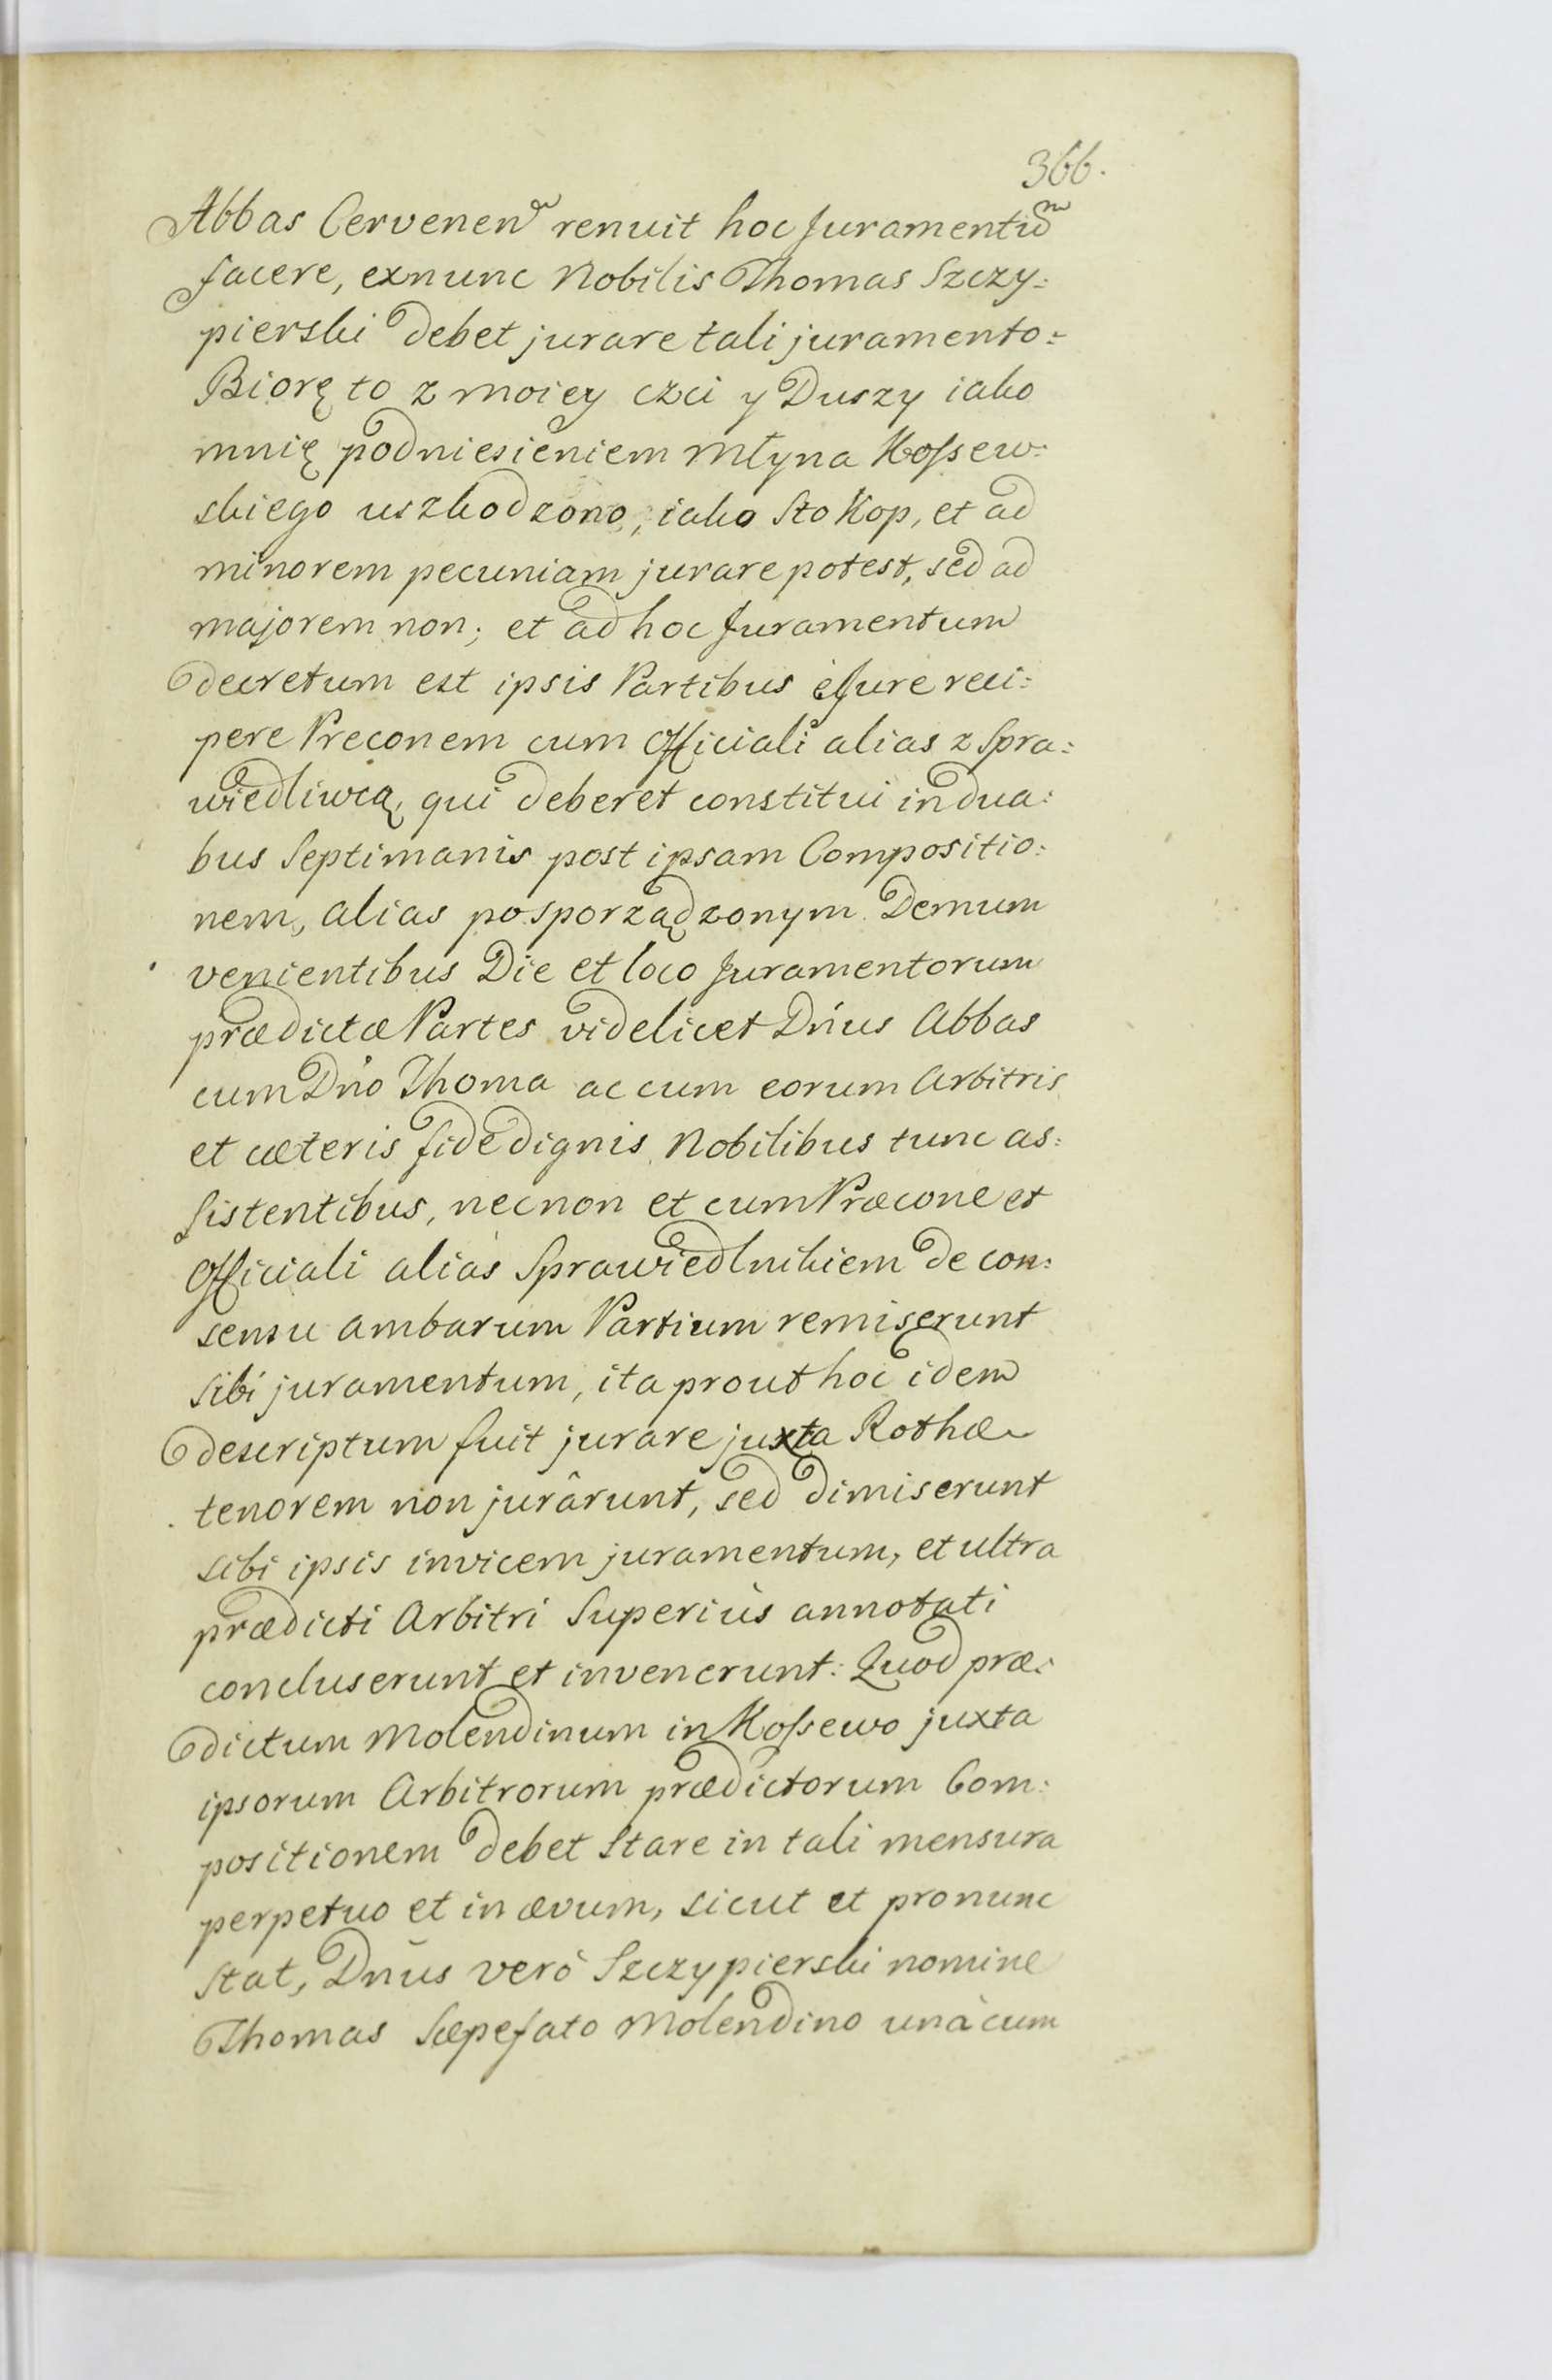 366.
Abbas Cervenen renuit hoc Juramentū
facere, exnunc Nobilis Thomas Szczy:
pierski debet jurare tali juramento:
Biorę to z moiey czci y Duszy iako
mnię podniesieniem Młyna Kossew:
skiego uszkodzono, iako Sto Kop, et ad
minorem pecuniam jurare potest, sed ad
majorem non; et ad hoc Juramentum
decretum est ipsis Partibus è Jure reci:
pere Preconem cum Officiali alias z Spra:
wiedliwcą, qui deberet constitui in dua:
bus Septimanis post ipsam Compositio:
nem, alias posporządzonym. Demum
venientibus Die et loco Juramentorum
prædictæ Partes videlicet Dńus Abbas
cum Dńo Thoma ac cum eorum Arbitris
et cæteris fide dignis Nobilibus tunc as:
sistentibus, necnon et cum Præcone et
Officiali alias Sprawiedlnikiem de con:
sensu ambarum Partium remiserunt
sibi juramentum, ita prout hoc idem
descriptum fuit jurare juxta Rothæ
tenorem non jurârunt, sed dimiserunt
sibi ipsis invicem juramentum, et ultra
prædicti Arbitri Superiùs annotati
concluserunt et invenerunt: Quod præ:
dictum Molendinum in Kossewo juxta
ipsorum Arbitrorum prædictorum Com:
positionem debet stare in tali mensura
perpetuo et in ævum, sicut et pronunc
stat, Dn̄us verò Szczypierski nomine
Thomas Sæpefato Molendino unàcum